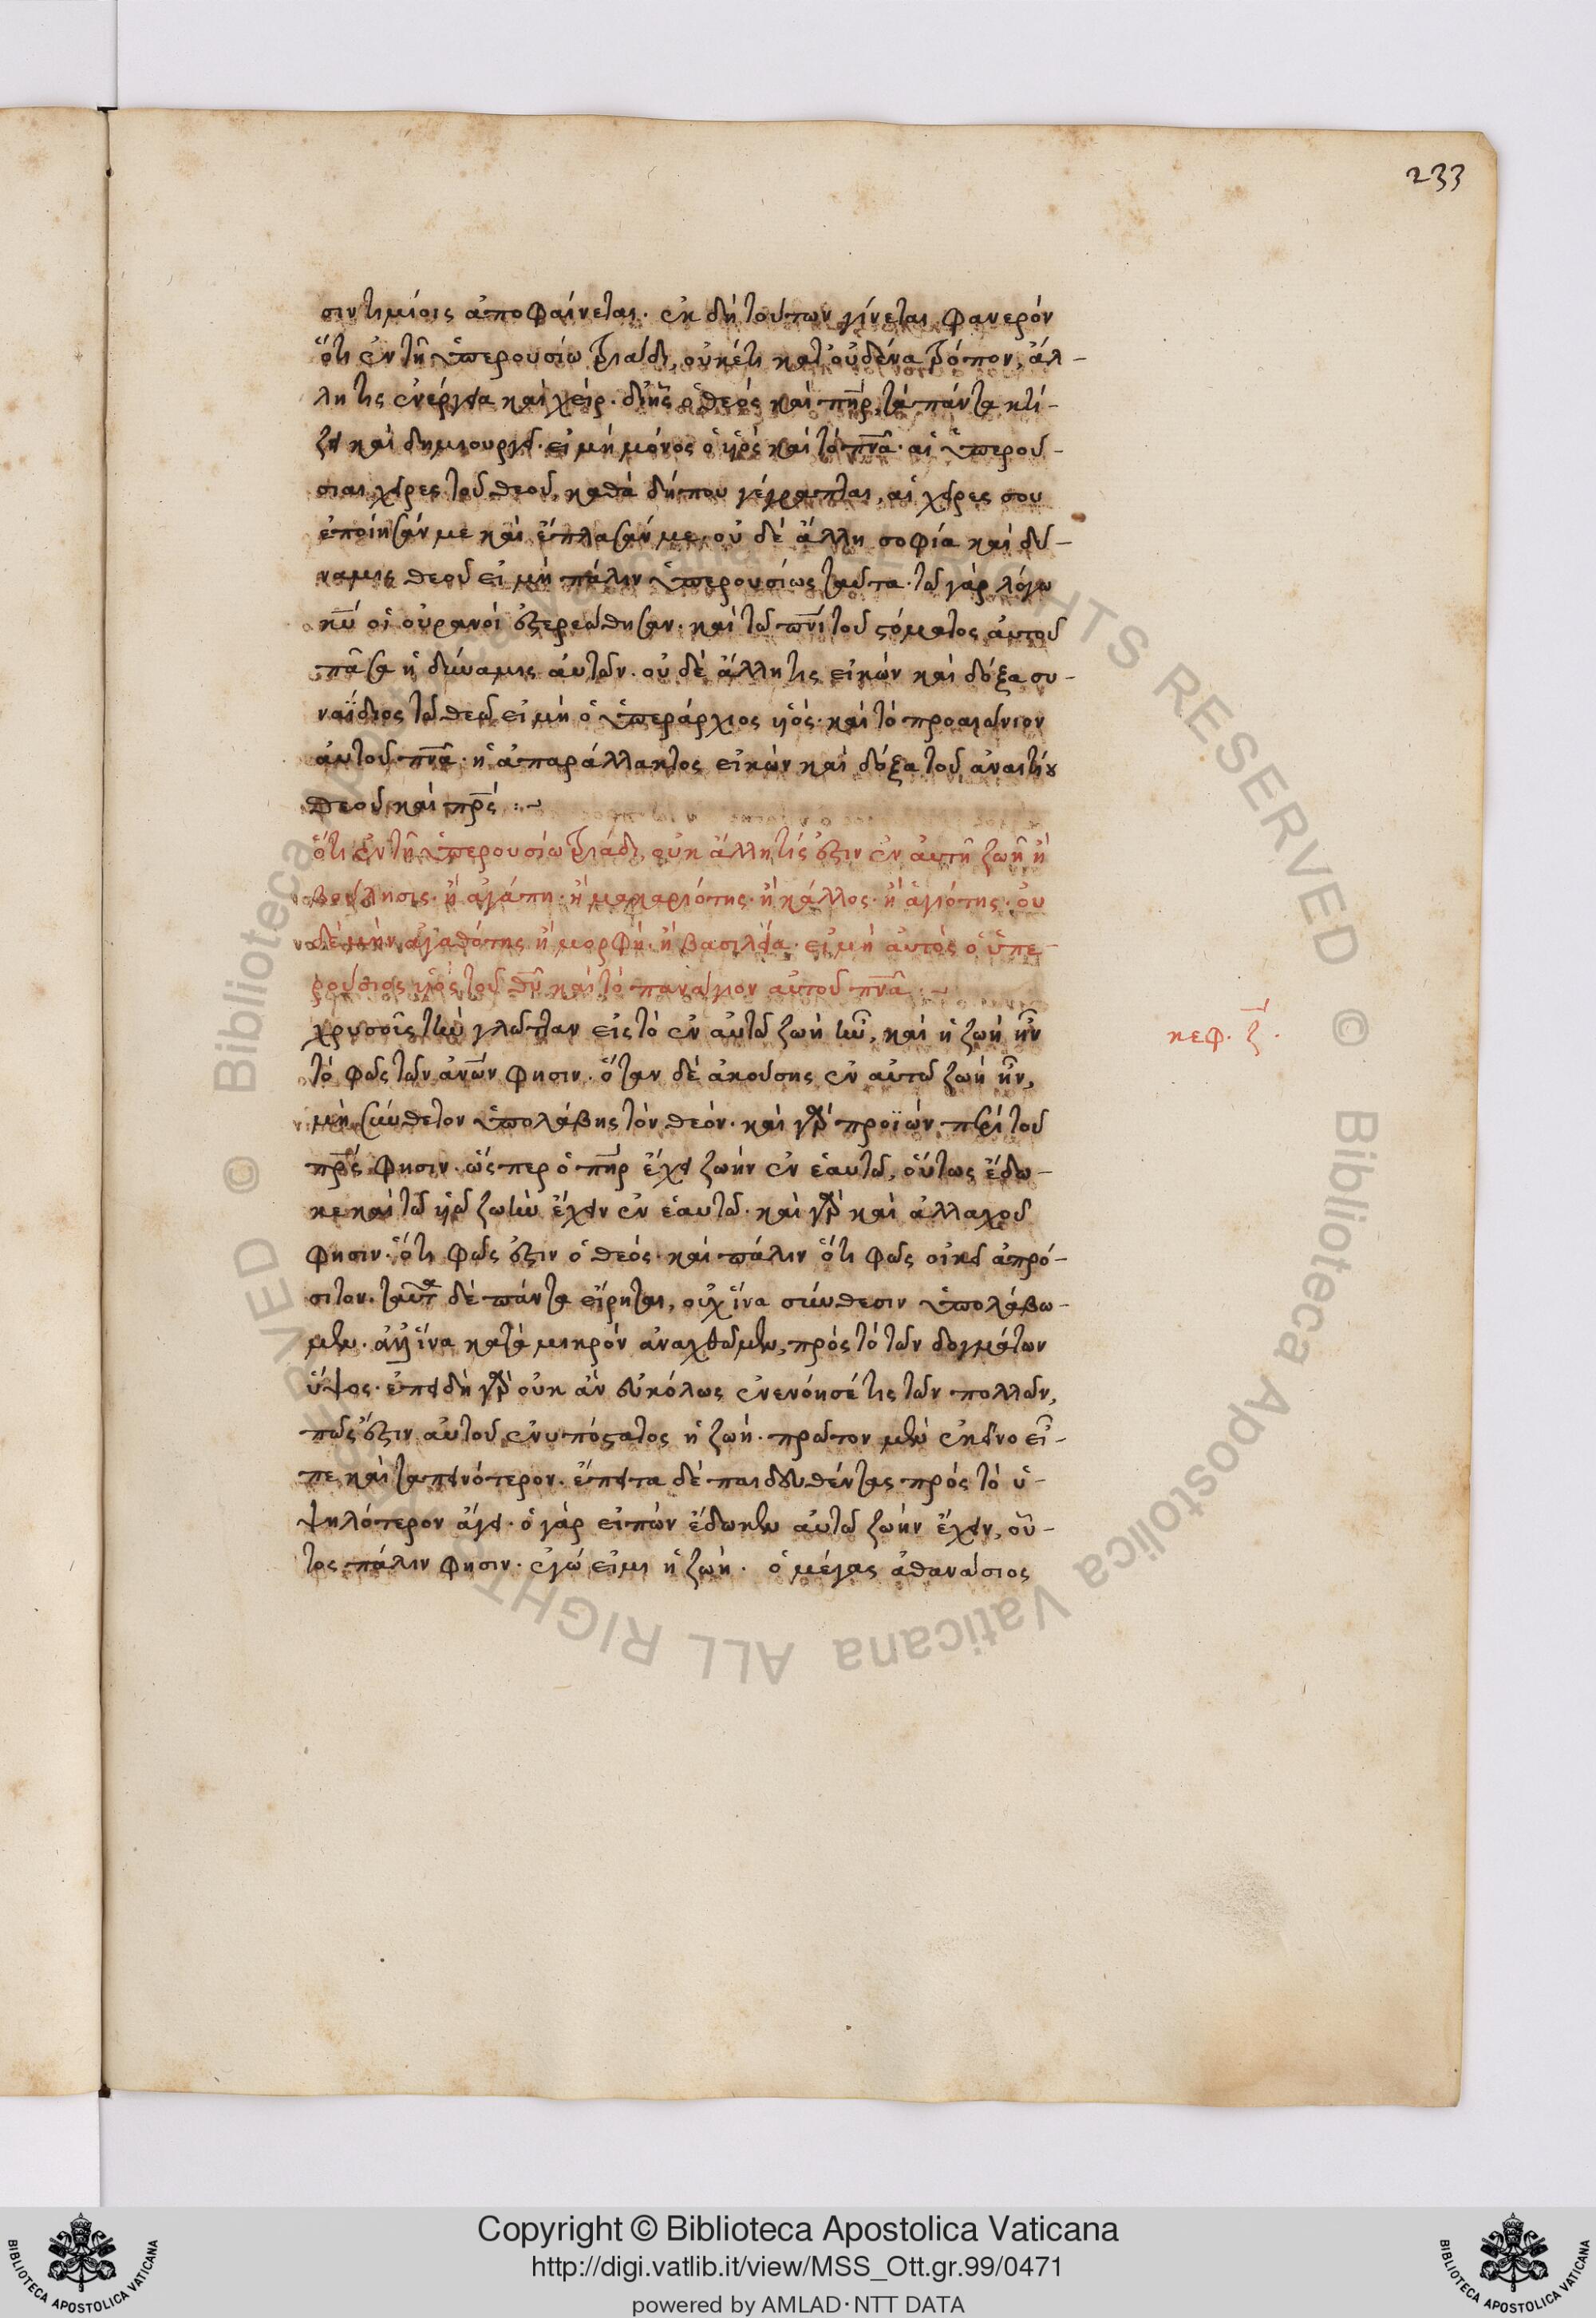 233
σιν τιμίοις ἀποφαίνεται. ἐκ δὴ τούτων γίνεται φανερόν
ὅτι ἐν τῆ ὑπερουσίω τριάδι, οὐκέτι κατ' οὐδένα τρόπον, ἄλ-
λη τις ἐνέργεια καὶ χεὶρ. δι' ἧς ὁ θεός καὶ πηρ, τὰ πάντα κτί-
ζει καὶ δημιουργεῖ. εἰ μὴ μόνος ὁ υἱός καὶ τὸ πνα. αἱ ὑπερού-
σιαι χεῖρες τοῦ θεοῦ, καθὰ δήπου γέγραπται, αἱ χεῖρες σου
ἐποίησάν με καὶ ἔπλασάν με. οὐ δὲ ἄλλη σοφία καὶ δύ-
ναμις θεοῦ εἰ μὴ πάλιν ὑπερουσίως ταῦτα. τῶ γὰρ λόγω
κυ οἱ οὐρανοὶ ἐστερεώθησαν. καὶ τῶ πνι τοῦ στόματος αὐτοῦ
πᾶσα ἡ δύναμις αὐτῶν. οὐ δὲ ἄλλη τις εἰκὼν καὶ δόξα συ-
ναΐδιος τῶ θεῶ εἰ μὴ ὁ ὑπεράρχιος υἱός. καὶ τὸ προαιώνιον
αὐτοῦ πνα. ἡ ἀπαράλλακτος εἰκὼν καὶ δόξα τοῦ ἀναιτίου
θεοῦ καὶ πρς :~
ὅτι ἐν τῆ ὑπερουσίω τριάδι, οὐκ ἄλλη τίς ἐστιν ἐν αὐτῆ ζωὴ ἢ
βούλησις. ἢ ἀγάπη. ἢ μακαριότης. ἢ κάλλος. ἢ ἁγιότης. οὐ
δὲ μὴν ἀγαθότης ἢ μορφή. ἢ βασιλεία. εἰ μὴ αὐτὸς ὁ ὑπε-
ρούσιος υἱός τοῦ θυ καὶ τὸ πανάγιον αὐτοῦ πνα :~
κεφ. ζ.
χρυσοῦς τὴν γλῶτταν εἰς τὸ ἐν αὐτῶ ζωὴ ἦν, καὶ ἡ ζωὴ ἦν
τὸ φῶς τῶν ἀνων φησιν. ὅταν δὲ ἀκούσης ἐν αὐτῶ ζωὴ ἦν,
μὴ σύνθετον ὑπολάβης τὸν θεόν. καὶ γὰρ προϊὼν περὶ τοῦ
πρς φησιν. ὥσπερ ὁ πηρ ἔχει ζωὴν ἐν ἑαυτῶ, οὕτως ἔδω-
κε καὶ τῶ υἱῶ ζωὴν ἔχειν ἐν ἑαυτῶ. καὶ γὰρ καὶ ἀλλαχοῦ
φησιν. ὅτι φῶς ἐστιν ὁ θεός. καὶ πάλιν ὅτι φῶς οἰκεῖ ἀπρό-
σιτον. ταῦτα δὲ πάντα εἴρηται, οὐχ ἵνα σύνθεσιν ὑπολάβω-
μεν. ἀλλ' ἵνα κατὰ μικρὸν ἀναχθῶμεν, πρὸς τὸ τῶν δογμάτων
ὕψος. ἐπειδὴ γὰρ οὐκ ἂν εὐκόλως ἐνενόησέ τις τῶν πολλῶν,
πῶς ἐστιν αὐτοῦ ἐνυπόστατος ἡ ζωή. πρῶτον μὲν ἐκεῖνο εἶ-
πε καὶ ταπεινότερον. ἔπειτα δὲ παιδευθέντας πρὸς τὸ ὑ-
ψηλότερον ἄγει. ὁ γὰρ εἰπὼν ἔδωκεν αὐτῶ ζωὴν ἔχειν, οὗ-
τος πάλιν φησιν. ἐγώ εἰμι ἡ ζωή. ὁ μέγας ἀθανάσιος
Copyright © Biblioteca Apostolica Vaticana
http://digi.vatlib.it/view/MSS_Ott.gr.99/0471
powered by AMLAD·NTT DATA